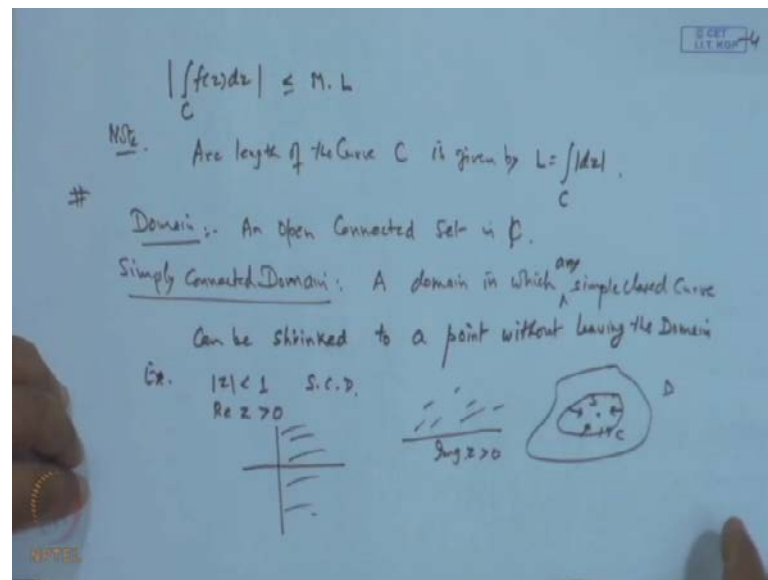 © CET
I.I.T. KGP
|∫f(z)dz| ≤ M. L
C
Note.
Arc length of the Curve C is given by L = ∫|dz|.
C
#
Domain:. An Open Connected Set in ₵.
Simply Connected Domain: A domain in which any simple closed Curve
Can be shrinked to a point without leaving the Domain
Ex. |z| < 1 S.C.D.
Re z > 0
Img. z > 0
D
C
NPTEL